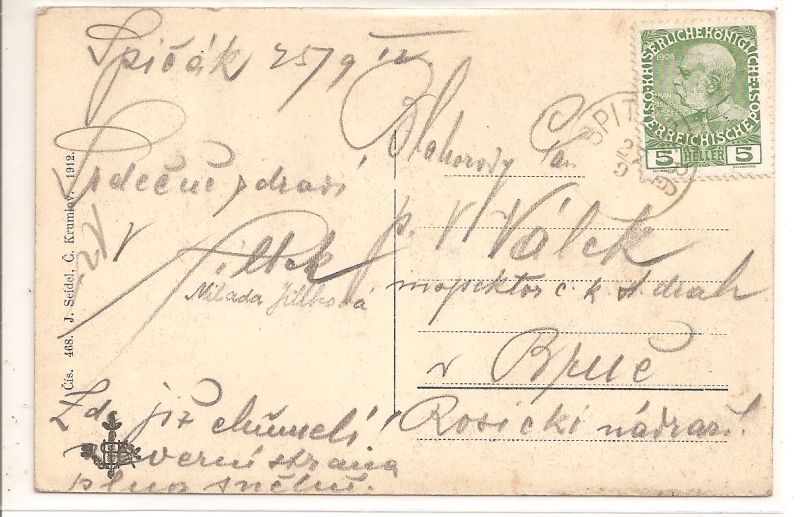 Špičák 25/9 12
Srdečně zdraví
Jiltek
Milada Jiltková
Zde již chumelí
severní strana
plna sněhu.
Blahorodý Pan
p. V Válek
inspektor c. k. st. drah
v Brně
Rosické nádraží.
K.K. ÖSTERREICHISCHE POST KAISERLICHE KÖNIGLICHE
1908
5 HELLER 5
SPITZ
Čís. 468. J. Seidel, Č. Krumlov. 1912.